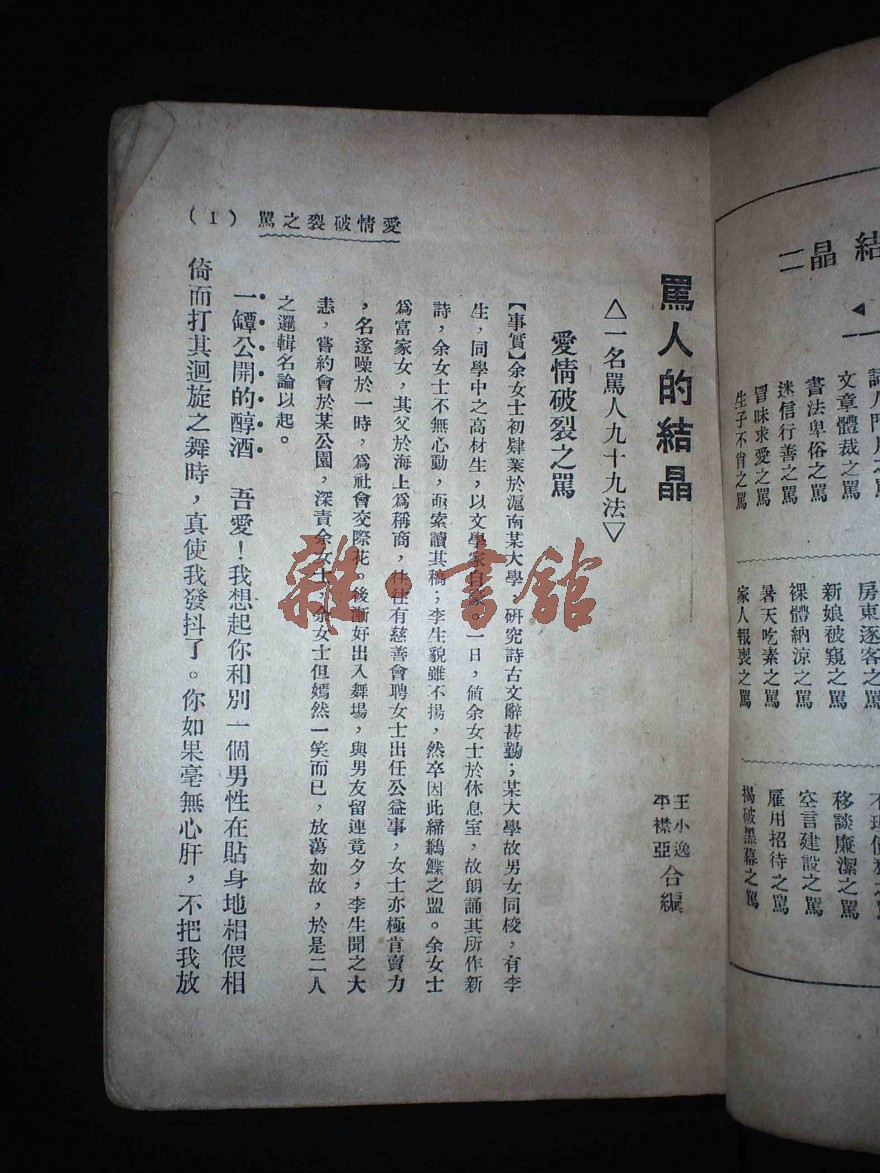 結晶二
文章體裁之罵
書法卑俗之罵
迷信行善之罵
冒昧求愛之罵
生子不肖之罵
房東逐客之罵
新娘被窺之罵
裸體納涼之罵
暑天吃素之罵
家人報喪之罵
移談廉潔之罵
空言建設之罵
雇用招待之罵
揭破黑幕之罵
罵人的結晶
王小逸
平襟亞
合編
△一名罵人九十九法▽
愛情破裂之罵
【事實】余女士初肄業於滬南某大學 研究詩古文辭甚勤；某大學故男女同校，有李
生，同學中之高材生，以文學家自豪。一日，偵余女士於休息室，故朗誦其所作新
詩，余女士不無心動，亟索讀其稿；李生貌雖不揚，然卒因此締鶼鰈之盟。余女士
爲富家女，其父於海上爲稱商，往往有慈善會聘女士出任公益事，女士亦極肯賣力
，名遂噪於一時，爲社會交際花。後漸好出入舞場，與男友留連竟夕，李生聞之大
恚，嘗約會於某公園，深責余女士，余女士但嫣然一笑而已，放蕩如故，於是二人
之邏輯名論以起。
一罈公開的醇酒 吾愛！我想起你和別一個男性在貼身地相偎相
倚而打其迴旋之舞時，真使我發抖了。你如果毫無心肝，不把我放
愛情破裂之罵 (1)
雜·書舘